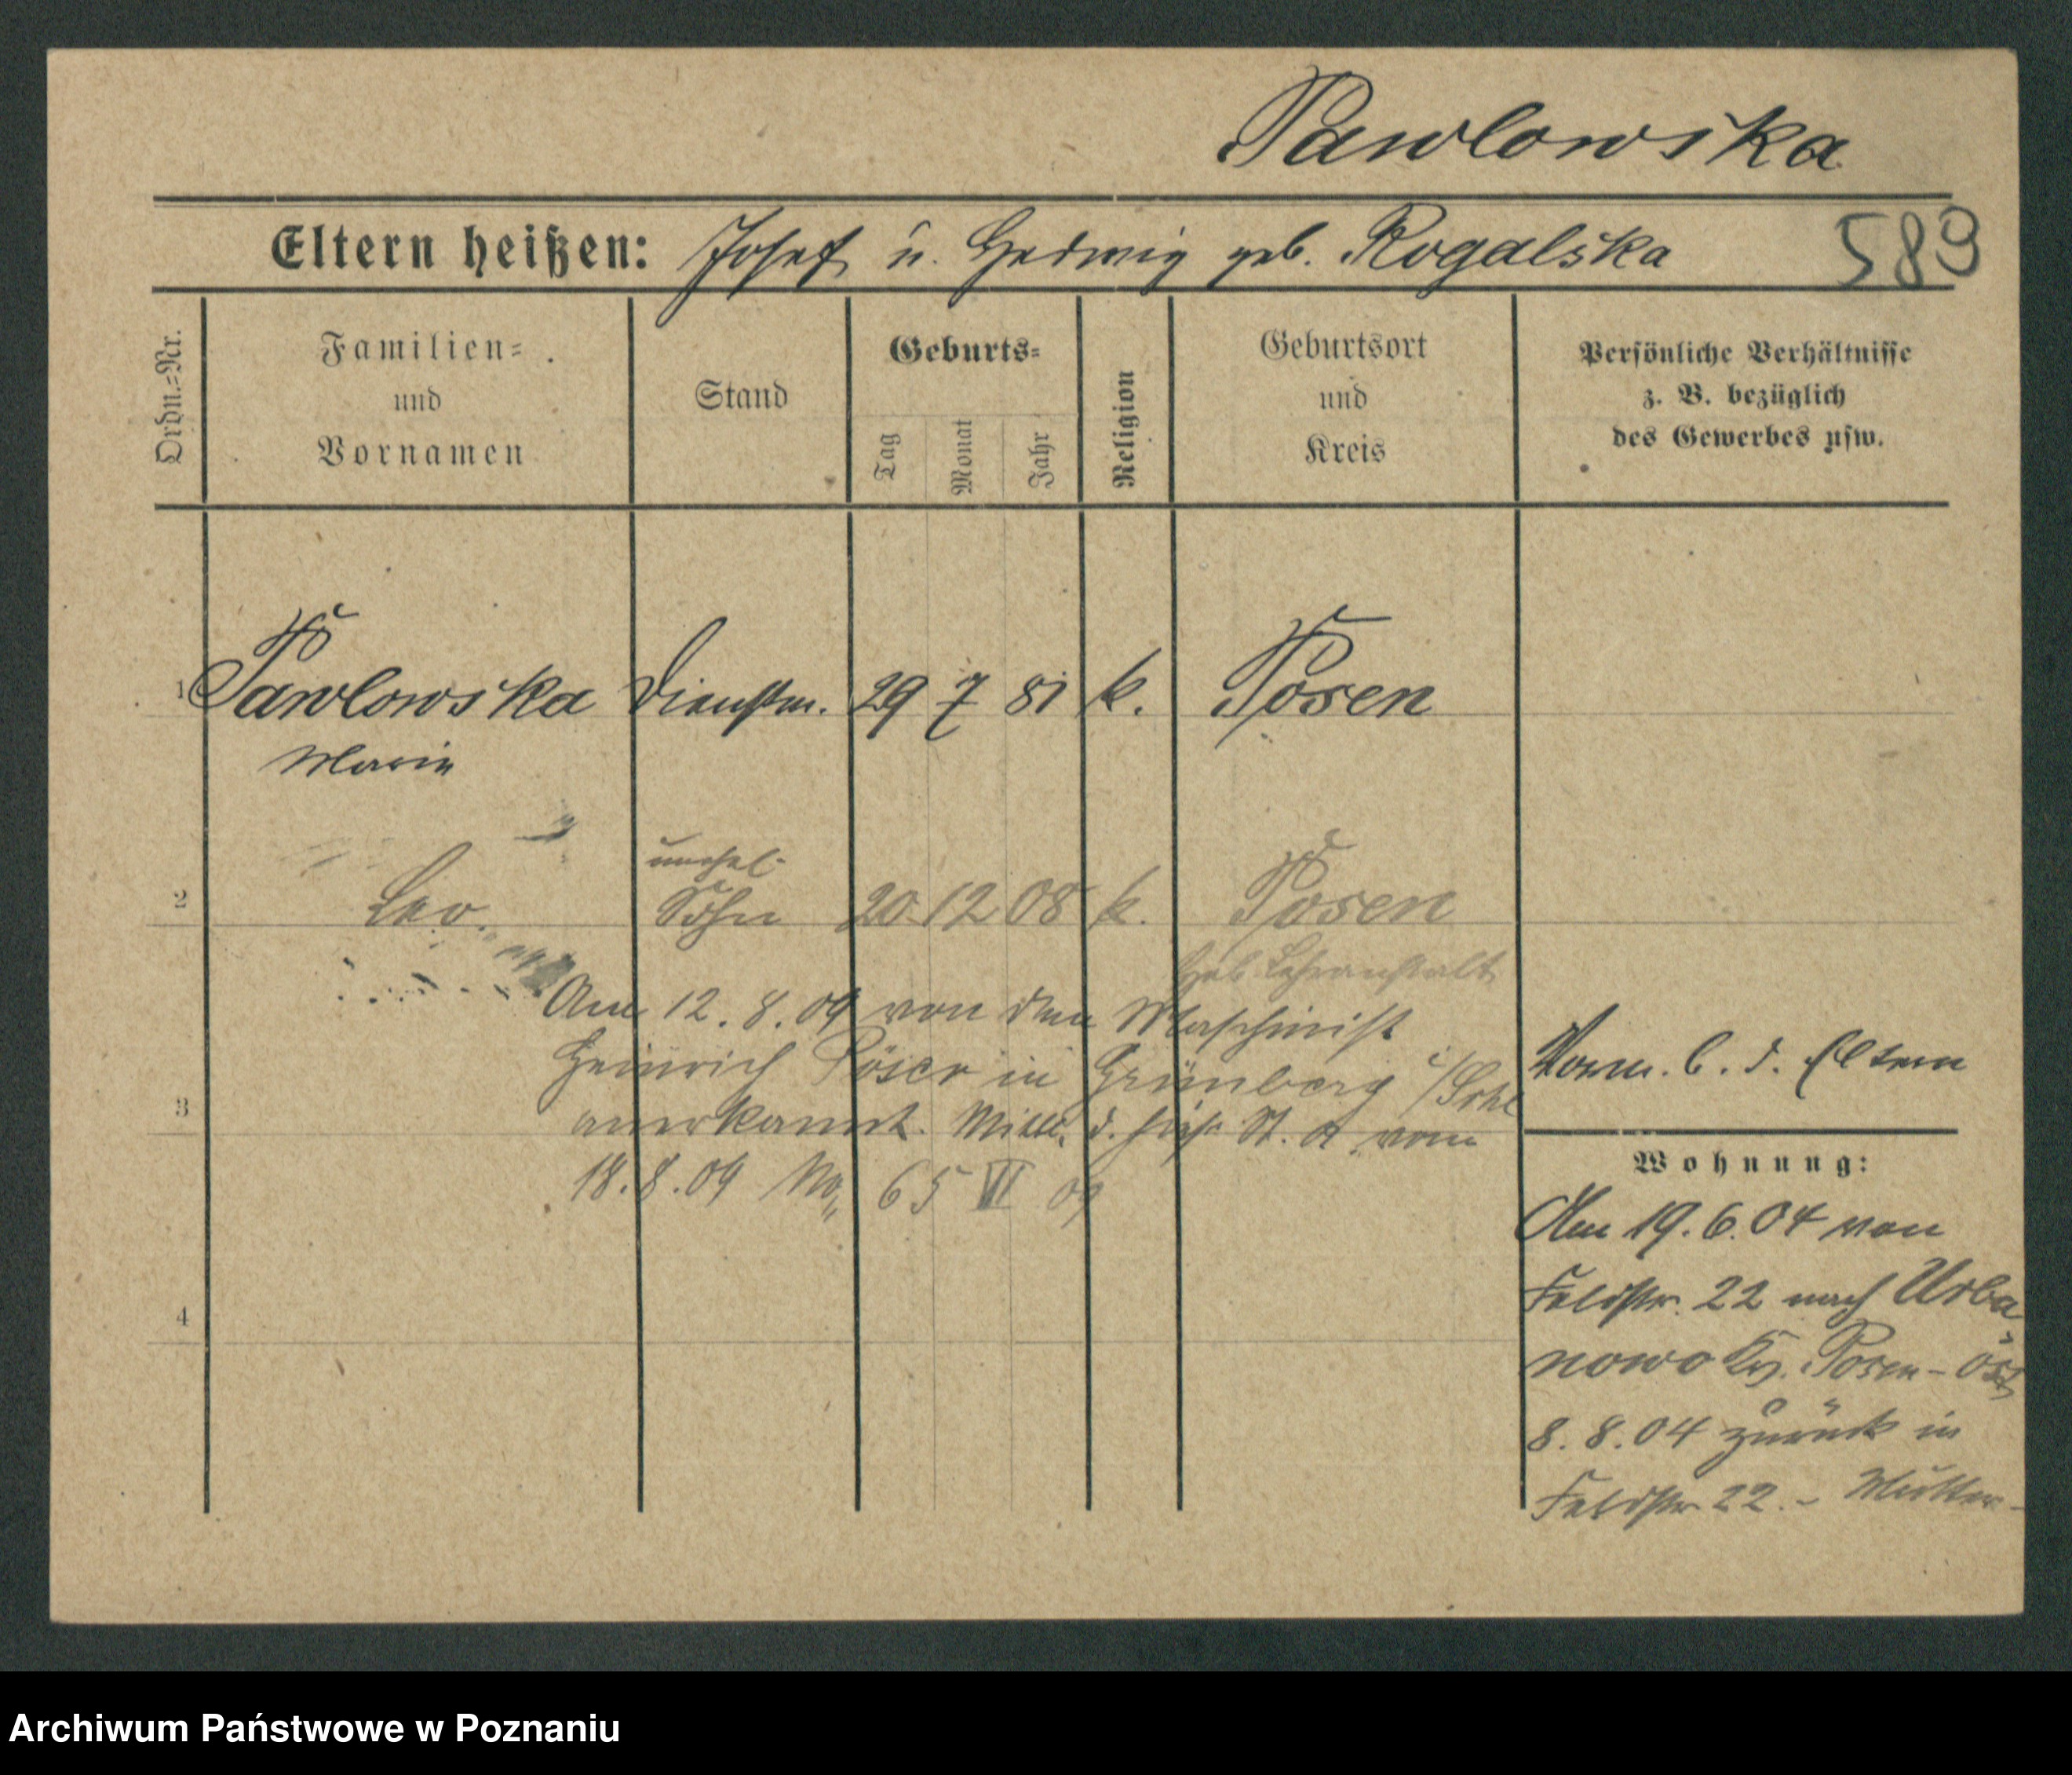 Pawlowska
Eltern heißen: Josef u. Hedwig geb. Rogalska 589
Ordn.=Nr.
Familien=
und
Vornamen
Stand
Geburts=
Tag
Monat
Jahr
Religion
Geburtsort
und
Kreis
Persönliche Verhältnisse
z. B. bezüglich
des Gewerbes usw.
1 Pawlowska Dienstm. 29 7 81 k. Posen
Marie
unehel.
2 Leo. Sohn 20 12 08 k. Posen
Heb. Lehranstalt
Am 12. 8. 09 von dem Maschinist
Heinrich in Grünberg i/Schl
anerkannt. Mitt. d. St. A. vom
18. 8. 09 No. 65 VI 09
3
4
Vorm. b. d. Eltern
Wohnung:
Am 19. 6. 04 von
Feldstr. 22 nach Urba
nowo Kr. Posen-Ost
8. 8. 04 zurück in
Feldstr 22. - Mutter-
Archiwum Państwowe w Poznaniu